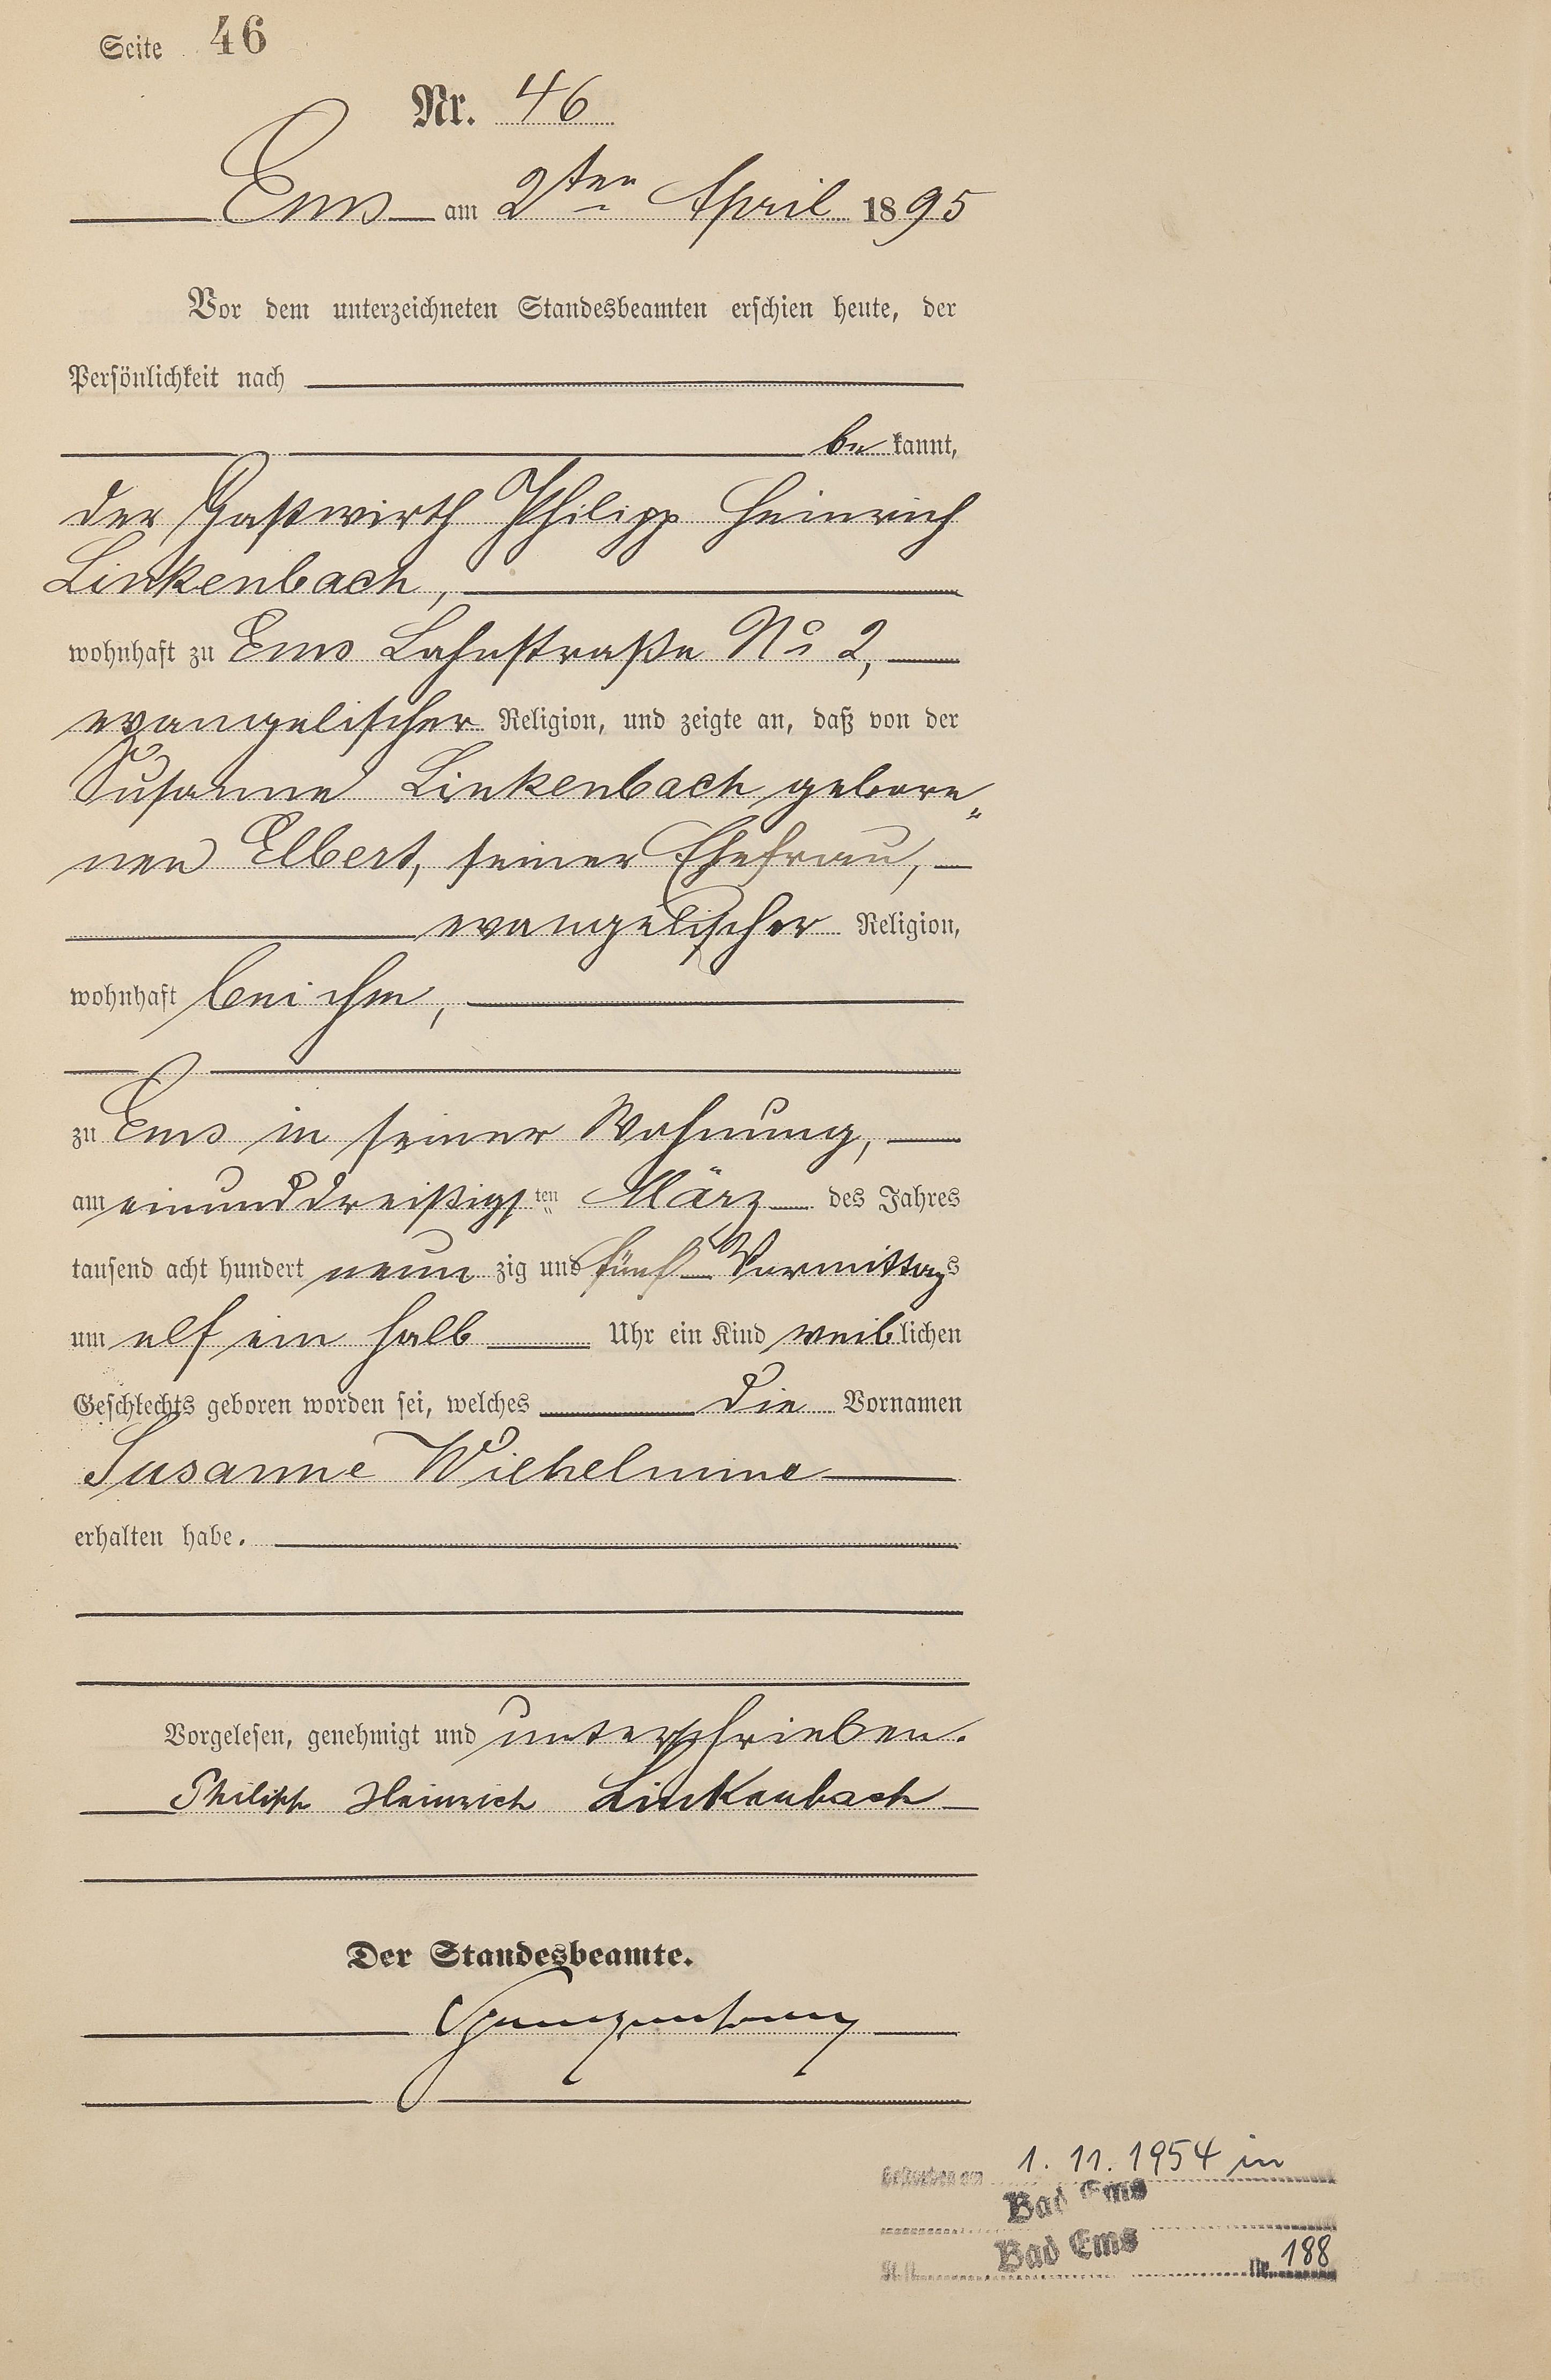 Seite 46
Nr. 46
Ems am 2ten April 1895
Vor dem unterzeichneten Standesbeamten erschien heute, der
Persönlichkeit nach
be kannt,
der Gastwirth Philipp Heinrich
Linkenbach,
wohnhaft zu Ems Lahnstraße No 2,
evangelischer Religion, und zeigte an, daß von der
Susanne Linkenbach gebore„
nen Elbert, seiner Ehefrau,
evangelischer Religion,
wohnhaft bei ihm,
zu Ems in seiner Wohnung,
am einunddreißigsten März des Jahres
tausend acht hundert neun zig und fünf Vormittags
um elf ein halb Uhr ein Kind weiblichen
Geschlechts geboren worden sei, welches die Vornamen
Susanne Wilhelmine
erhalten habe.
Vorgelesen, genehmigt und unterschrieben.
Philipp Heinrich Linkenbach
Der Standesbeamte.
Gestorben am 1. 11. 1954 in
Bad Ems
Bad Ems Nr. 188